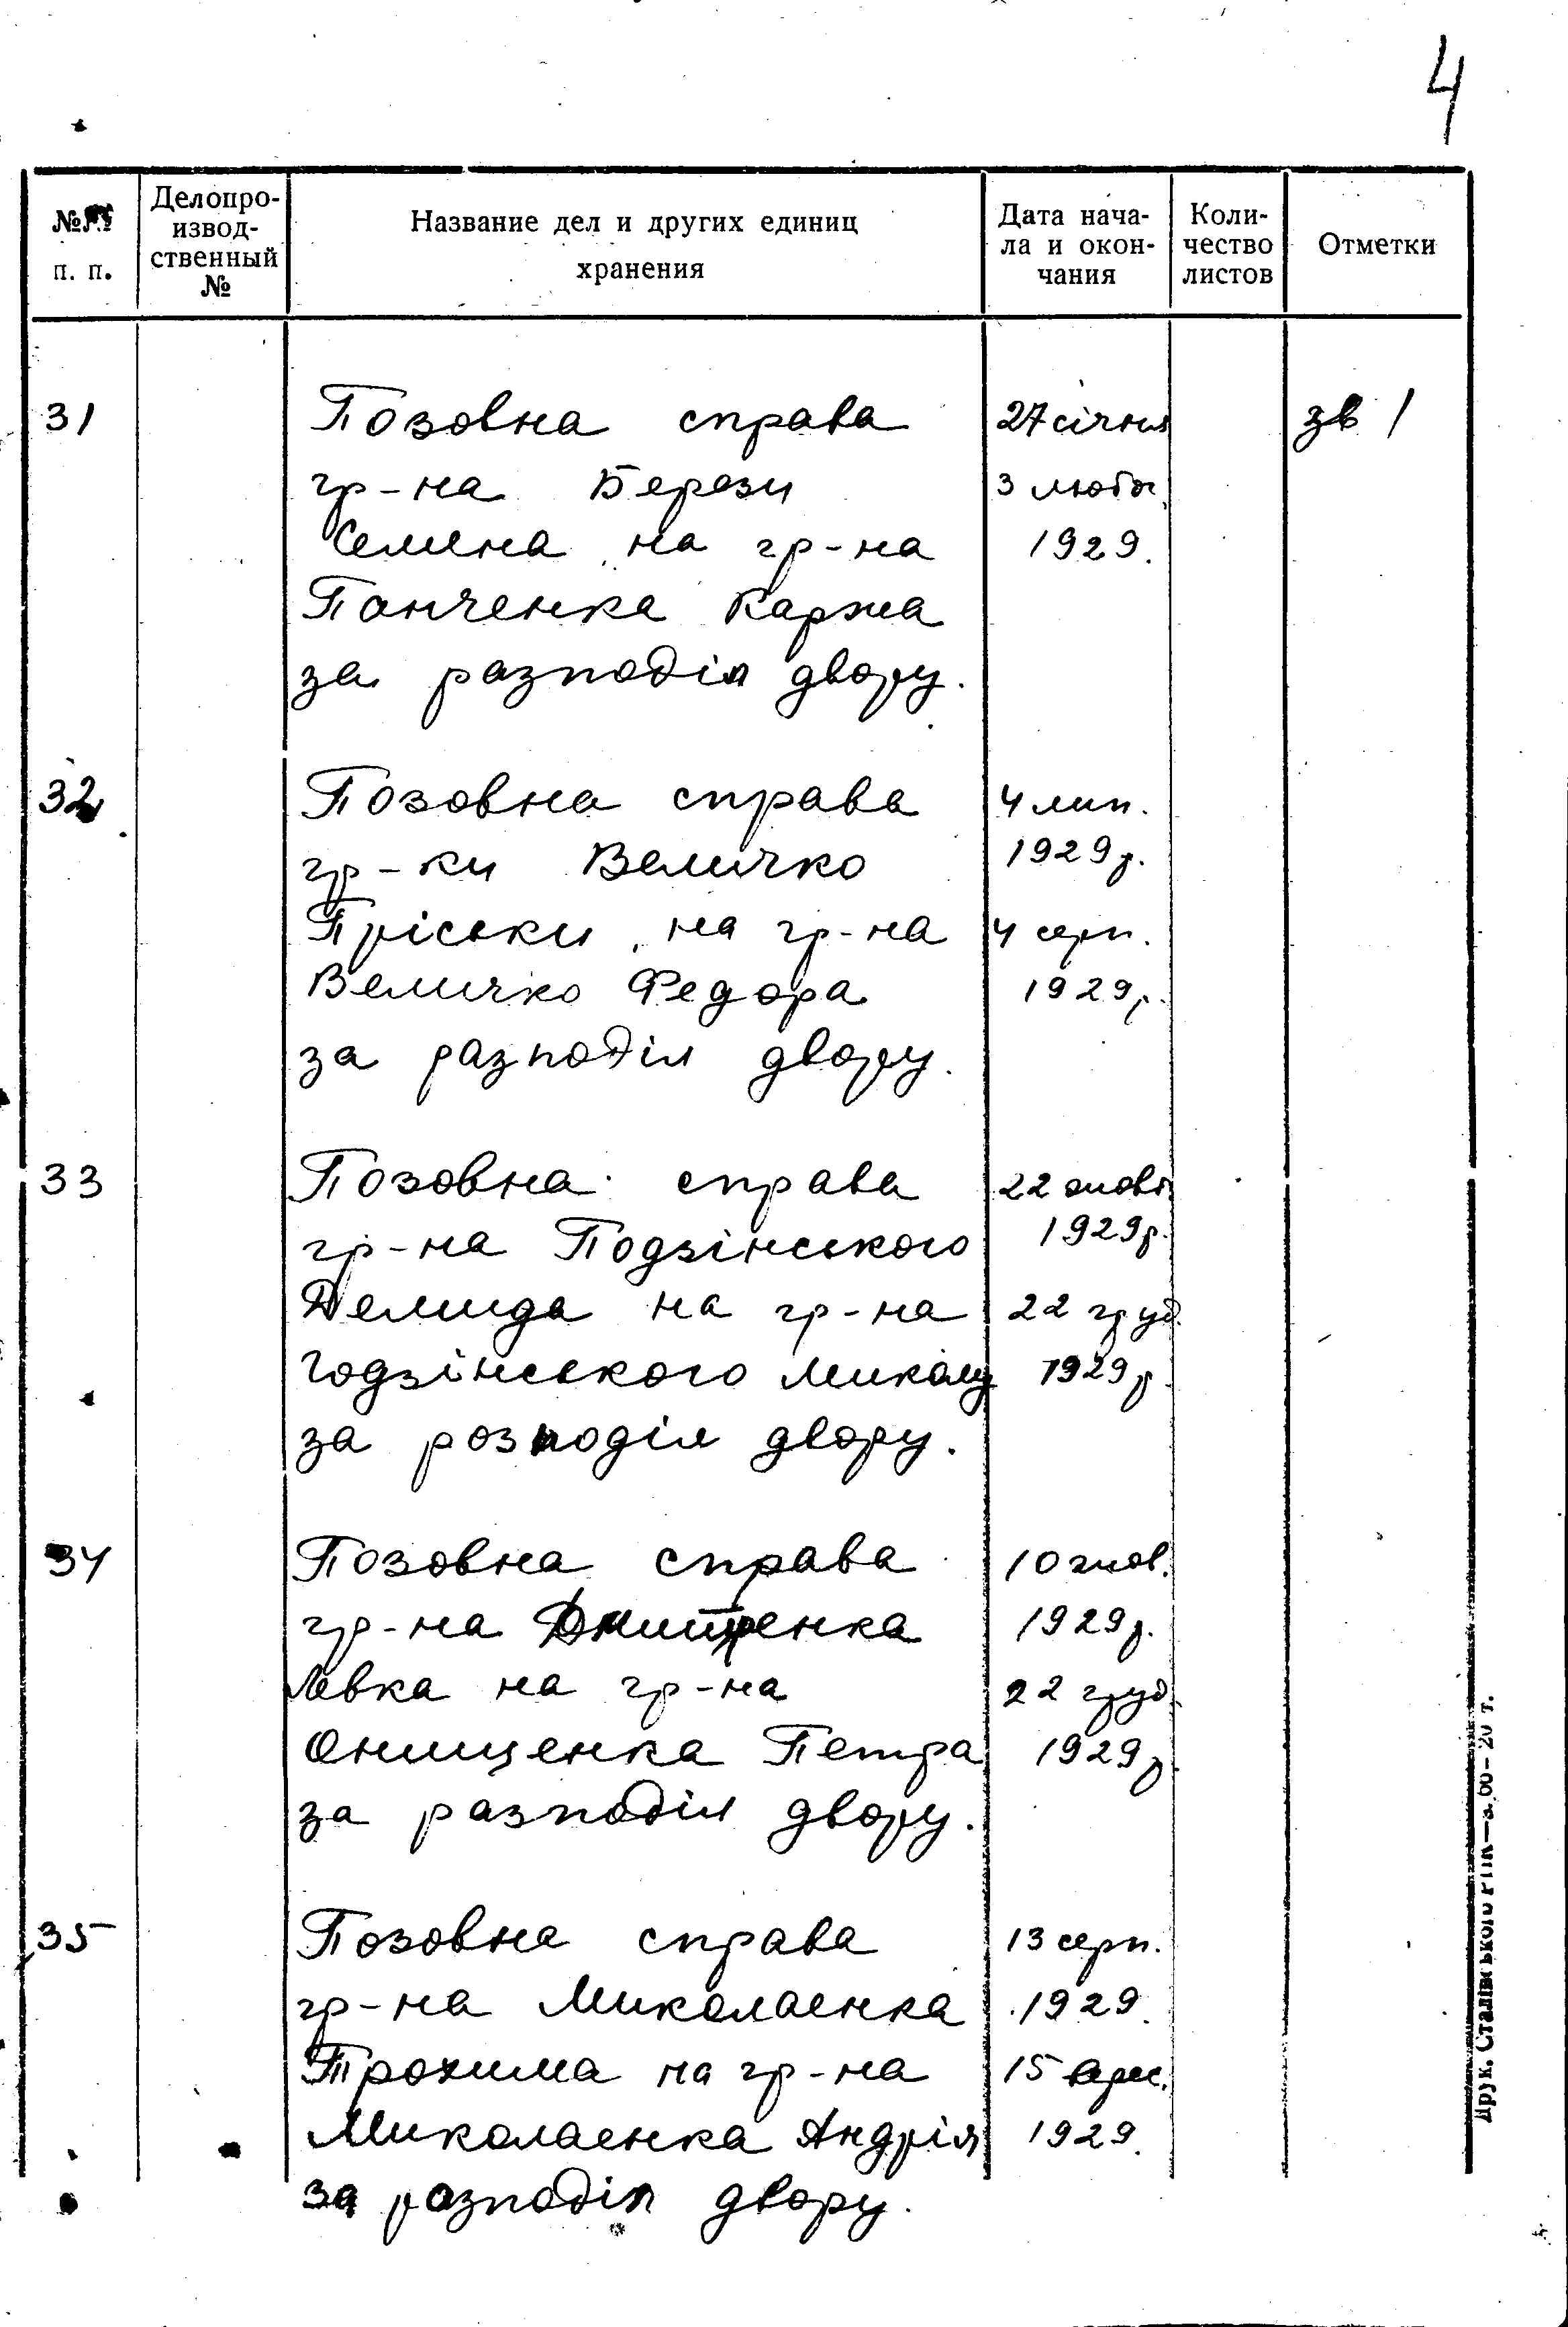 4
№№ п. п.
Делопро-
извод-
ственный
№
Название дел и других единиц
хранения
Дата нача-
ла и окон-
чания
Коли-
чество
листов
Отметки
31 Позовна справа 27 січня зв 1
гр-на Берези 3 лютог.
Семена на гр-на 1929.
Панченка Карпа
за разподіл двору.
32 Позовна справа 4 лип.
гр-ки Величко 1929 р.
Пріськи на гр-на 4 серп.
Величко Федора 1929 р.
за разподіл двору.
33 Позовна справа 22 жовт
гр-на Подзінського 1929 р.
Демида на гр-на 22 груд.
Годзінського Миколу 1929 р.
за розподіл двору.
34 Позовна справа 10 жов.
гр-на 1929 р.
Левка на гр-на 22 груд.
Онищенка Петра 1929 р.
за разподіл двору.
35 Позовна справа 13 серп.
гр-на Миколаенка 1929.
Трохима на гр-на 15 верес.
Миколаенка Андрія 1929.
за разподіл двору.
Друк. Сталінського